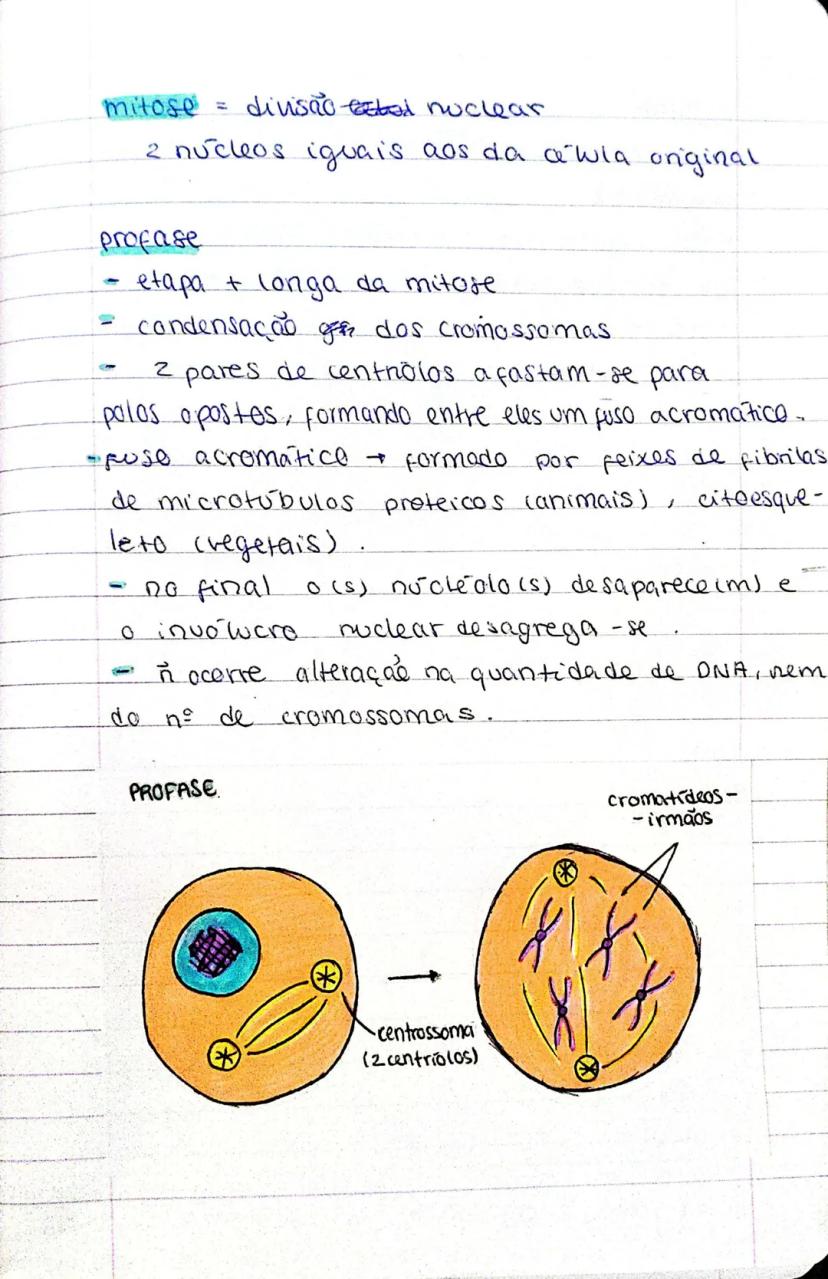 mitose = divisão nuclear
2 núcleos iguais aos da célula original
profase
- etapa + longa da mitose
- condensação dos cromossomas
- 2 pares de centríolos afastam-se para
polos opostos, formando entre eles um fuso acromático.
- fuso acromático → formado por feixes de fibrilas
de microtúbulos proteicos (animais), citoesque-
leto (vegetais).
- no final o(s) núcléolo(s) desaparece(m) e
o invólucro nuclear desagrega-se.
- ñ ocorre alteração na quantidade de DNA, nem
do nº de cromossomas.
PROFASE.
cromatídeos-
-irmãos
centrossoma
(2 centríolos)